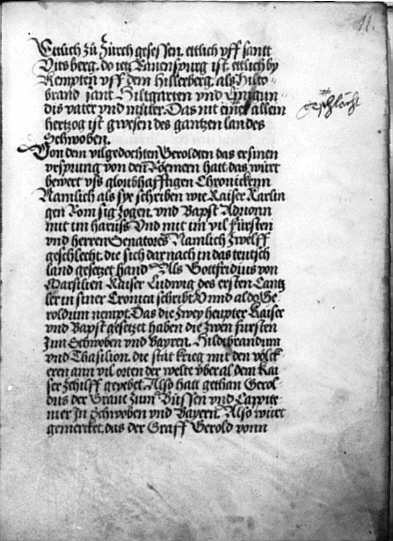 11.
Ettlich zů Zürch gesessen. ettlich vff sannt
Vits berg. do ietz Rauenspurg ist. ettlich by
Kempten vff dem Hillerberg. als Hilte-
brand sant Hiltgarten vnd
dis vater vnd můter. Das nit einer allein
hertzog ist gwesen des gantzen landes
Schwoben.
Von dem vilgedochten Gerolden das er sinen
vrsprung von den Roemern hatt. das würt
bewert vß gloubhafftigen Chronicken
Namlich als sye schriben wie Kaiser Karlin
gen Rom sig zogen. vnd Bapst Adrionn
mit im haruß. Vnd mit im vil fürsten
vnd herren Senatores Namlich zwelff
geschlecht. die sich dar nach in das teutsch
land gesetzet hand. Als Gottfridius von
Marsilien Kaiser Ludwig des ersten Cantz
ler in siner Cronica schribt. Vnnd aldo Ge-
roldum nempt. Das die zwey heupter Kaiser
vnd Bapst gesetzet haben die zwen fursten
zun Schwoben vnd Bayren. Hildebrandum
vnd Thasilion. die stät krieg mit den völck
eren ann vil orten der welte vber al dem Kai
ser zehilff geyebet. Also hatt gethan Gerol-
dus der Graue zum Bussen vnd
ner zu Schwoben vnd Bayern. Also würt
gemercket. das der Graff Gerold vonn